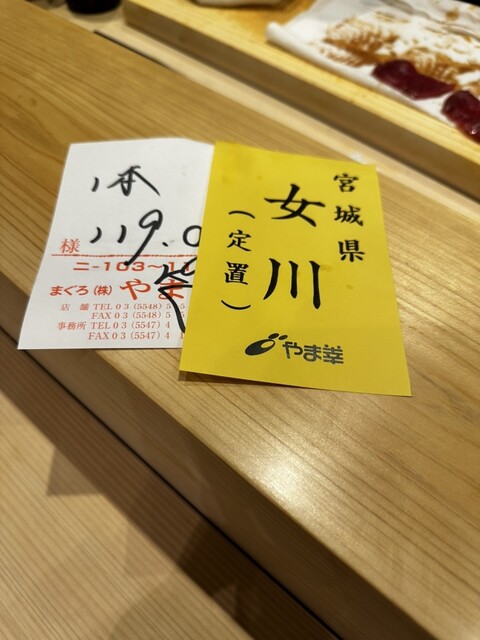 本
119.0
様
ニ-103~1
まぐろ(株) やま
店 舗 TEL 03 (5548) 5
FAX 03 (5548) 5
事務所 TEL 03 (5547) 4
FAX 03 (5547) 4
宮城県
女川
(定置)
やま幸